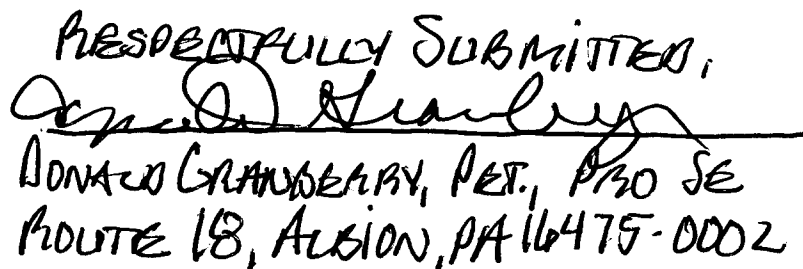 RESPECTFULLY SUBMITTED,
Donald Granberry
DONALD GRANBERRY, PET., PRO SE
ROUTE 18, ALBION, PA 16475-0002